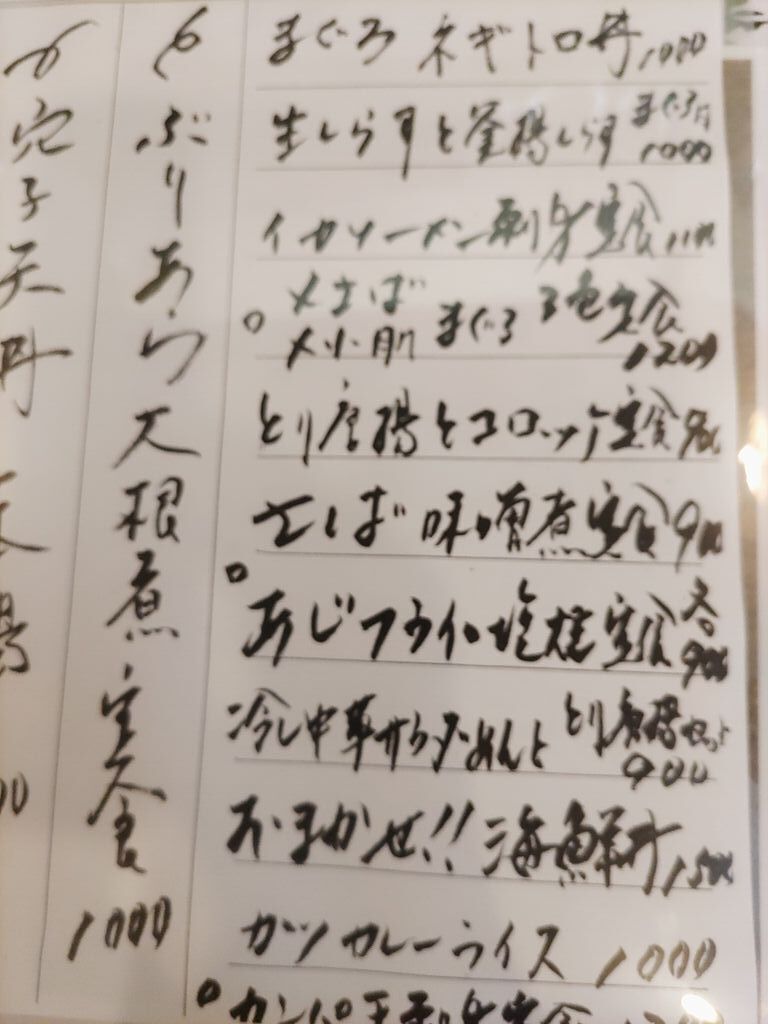 まぐろ ネギトロ丼 1000
生しらすと釜揚しらす まぐろ丼 1000
イカソーメン刺身定食 1100
〆さば 〆小肌 まぐろ 3色定食 1200
とり唐揚とコロッケ定食 900
さば味噌煮定食 900
あじフライ・塩焼定食 各900
冷し中華サラダめんと とり唐揚セット 900
おまかせ!! 海鮮丼 1500
カツカレーライス 1000
カンパチ刺身定食
ぶりあら大根煮定食 1000
穴子天丼